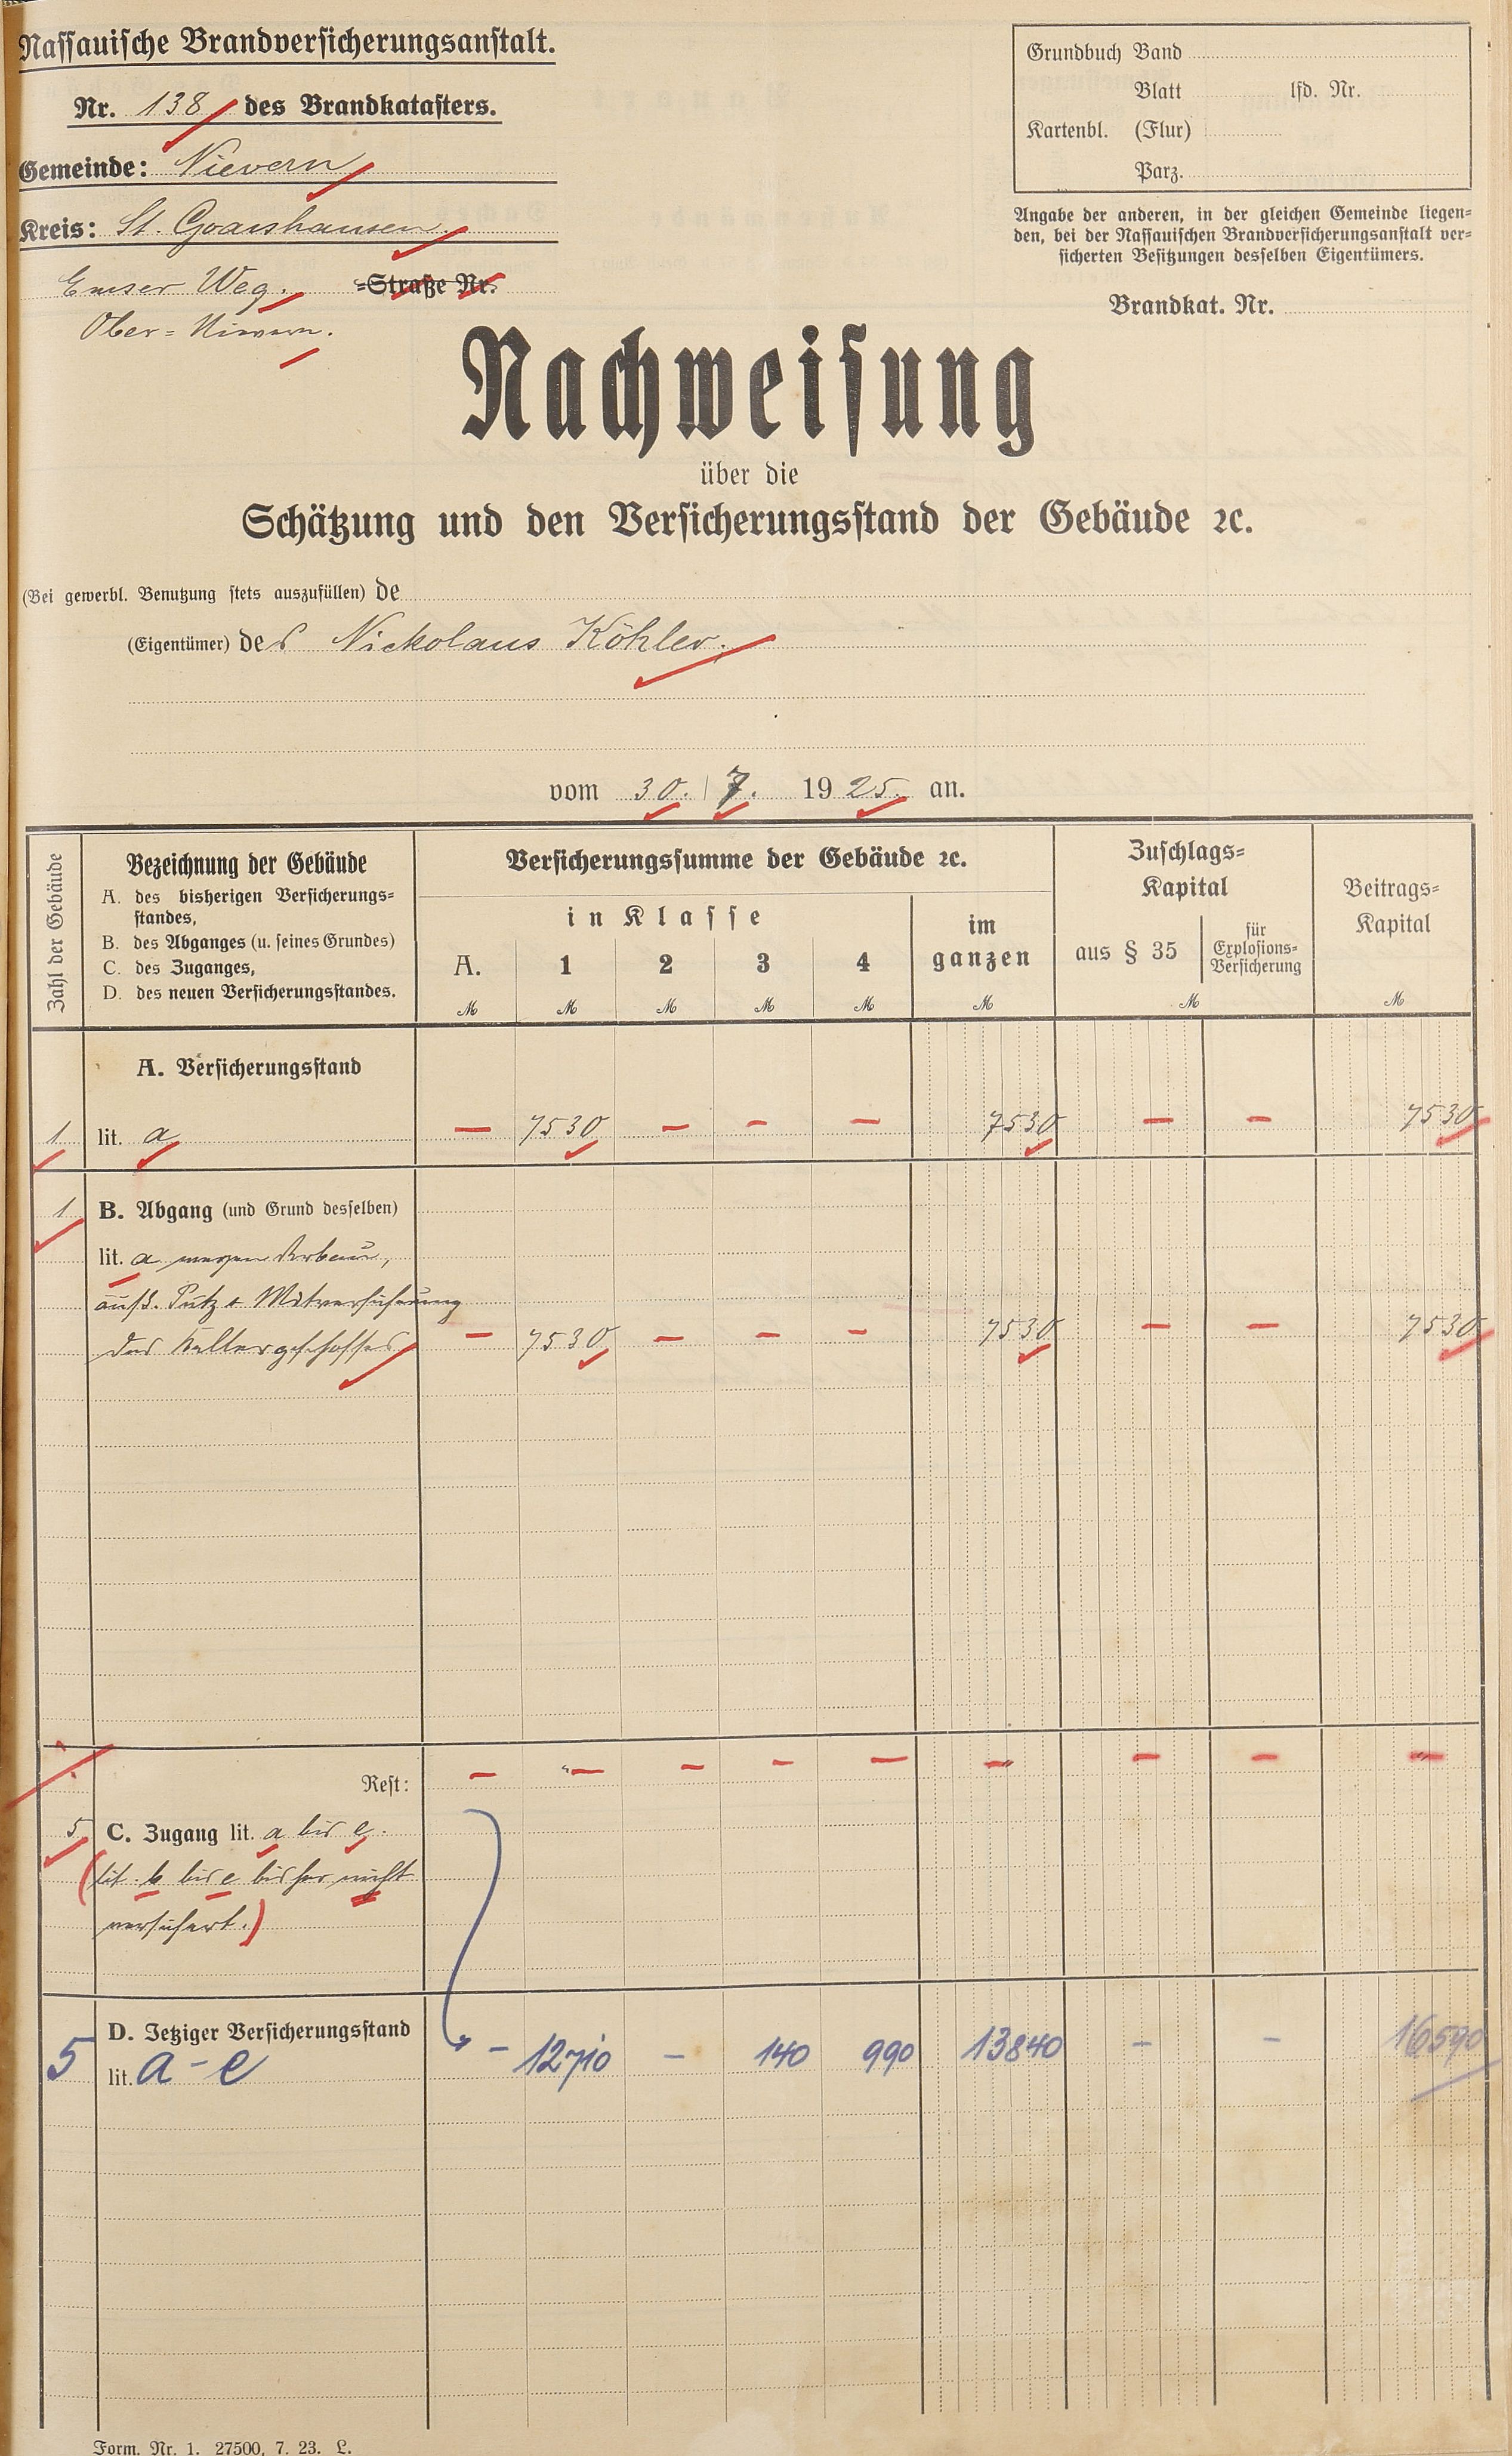 Nassauische Brandversicherungsanstalt.
Nr. 138 des Brandkatasters.
Gemeinde: Nievern
Kreis: St. Goarshausen.
Emser Weg. =Straße Nr.
Ober=Nievern.
Grundbuch Band
Blatt lfd. Nr.
Kartenbl. (Flur)
Parz.
Angabe der anderen, in der gleichen Gemeinde liegen=
den, bei der Nassauischen Brandversicherungsanstalt ver=
sicherten Besitzungen desselben Eigentümers.
Brandkat. Nr.
Nachweisung
über die
Schätzung und den Versicherungsstand der Gebäude ꝛc.
(Bei gewerbl. Benutzung stets auszufüllen) de
(Eigentümer) des Nickolaus Köhler.
vom 30. 7. 1925. an.
Zahl der Gebäude
Bezeichnung der Gebäude
A. des bisherigen Versicherungs=
standes,
B. des Abganges (u. seines Grundes)
C. des Zuganges,
D. des neuen Versicherungsstandes.
Versicherungssumme der Gebäude ꝛc.
in Klasse
A. 1 2 3 4
im
ganzen
Zuschlags=
Kapital
aus § 35
für
Explosions=
Versicherung
Beitrags=
Kapital
M M M M M M M M
A. Versicherungsstand
1 lit. a — 7530 — — — 7530 — — 7530
1 B. Abgang (und Grund desselben)
lit. a wegen Anbau,
äuß. Putz + Mitversicherung
des Kellergeschosses — 7530 — — — 7530 — — 7530
Rest: — „— — — — —„ — — —„
5 C. Zugang lit. a bis e.
(lit. b bis e bisher nicht
versichert.)
D. Jetziger Versicherungsstand
5 lit. a - e - 12710 - 140 990 13840 - - 16590
Form. Nr. 1. 27500. 7. 23. L.